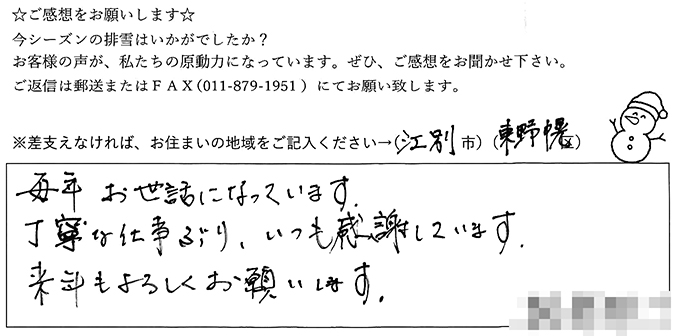 ☆ご感想をお願いします☆
今シーズンの排雪はいかがでしたか？
お客様の声が、私たちの原動力になっています。ぜひ、ご感想をお聞かせ下さい。
ご返信は郵送またはＦＡＸ（011-879-1951 ）にてお願い致します。
※差支えなければ、お住まいの地域をご記入ください→（江別 市）（東野幌 区）
毎年 お世話になっています.
丁寧な仕事ぶり、いつも感謝しています.
来年もよろしくお願いします.